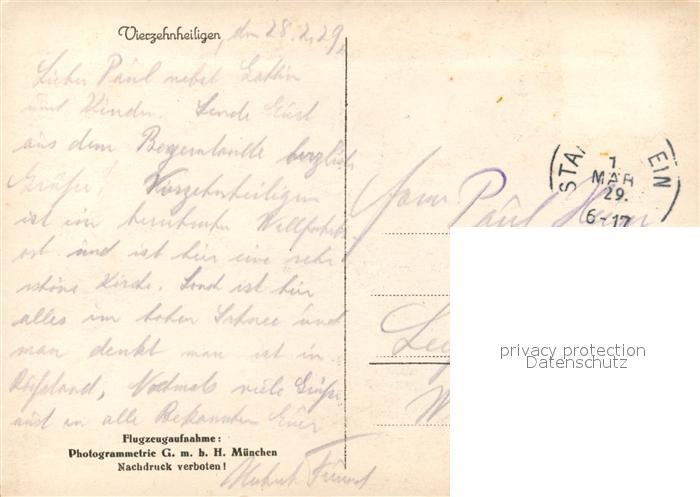 Vierzehnheiligen, den 28.2.29.
Lieber Paul nebst Gattin
und Kinder. Sende Euch
aus dem Bayernlande herzlich
Grüße! Vierzehnheiligen
ist ein berühmter Wallfahrts
ort und ist hier eine sehr
schöne Kirche. Sonst ist hier
alles im hohen Schnee und
man denkt man ist in
Rußland, Nochmals viele Grüße
auch an alle Bekannten Euer
Freund
Flugzeugaufnahme:
Photogrammetrie G. m. b. H. München
Nachdruck verboten!
STA EIN
1.
MÄR
29.
6-17
Paul
privacy protection
Datenschutz